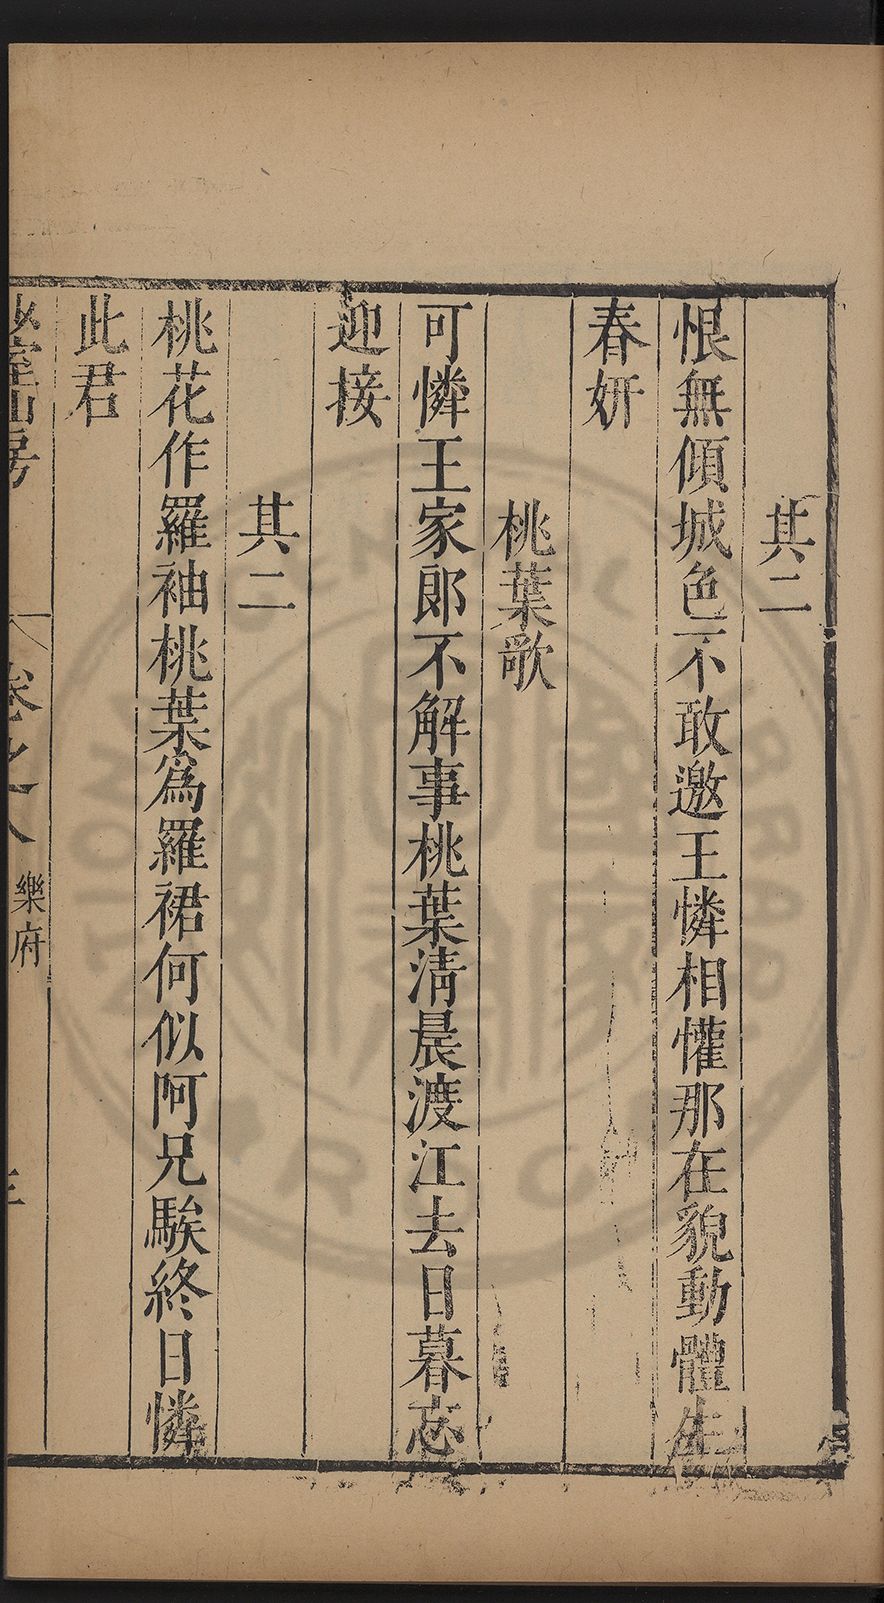 其二
恨無傾城色不敢邀王憐相懽那在貌動體生
春妍
桃葉歌
可憐王家郎不解事桃葉淸晨渡江去日暮忘
迎接
其二
桃花作羅袖桃葉爲羅裙何似阿兄騃終日憐
此君
山房 卷之八 樂府